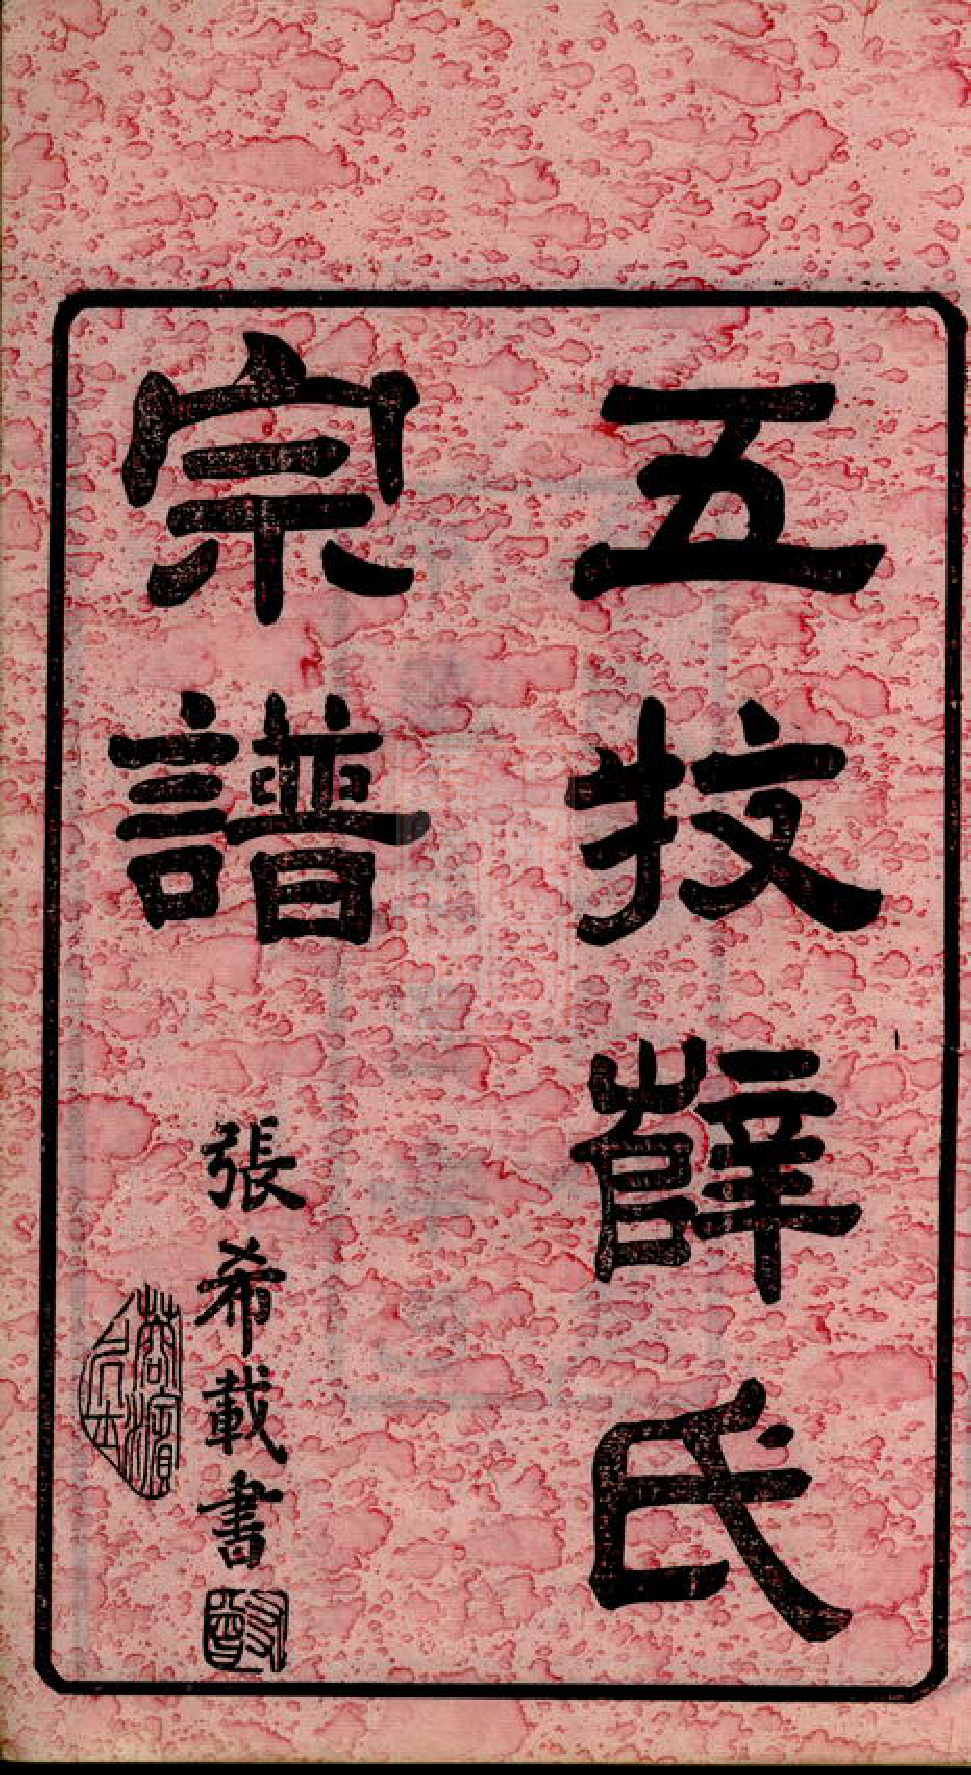 五牧薛氏
宗譜
張希載書